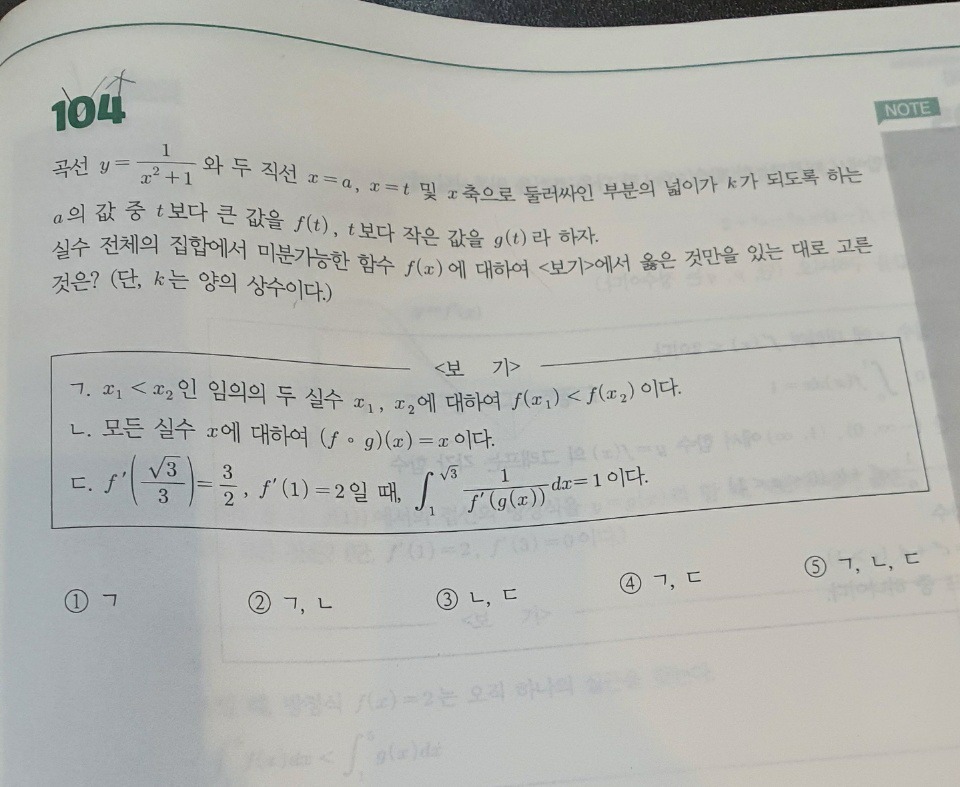 104
NOTE
곡선 y = \frac{1}{x^2+1} 와 두 직선 x=a, x=t 및 x축으로 둘러싸인 부분의 넓이가 k가 되도록 하는
a의 값 중 t보다 큰 값을 f(t), t보다 작은 값을 g(t)라 하자.
실수 전체의 집합에서 미분가능한 함수 f(x)에 대하여 <보기>에서 옳은 것만을 있는 대로 고른
것은? (단, k는 양의 상수이다.)
<보 기>
ㄱ. x₁ < x₂인 임의의 두 실수 x₁, x₂에 대하여 f(x₁) < f(x₂)이다.
ㄴ. 모든 실수 x에 대하여 (f∘g)(x) = x이다.
ㄷ. f'(\frac{√3}{3}) = \frac{3}{2}, f'(1) = 2일 때, ∫_1^{√3} \frac{1}{f'(g(x))} dx = 1이다.
① ㄱ ② ㄱ, ㄴ ③ ㄴ, ㄷ ④ ㄱ, ㄷ ⑤ ㄱ, ㄴ, ㄷ